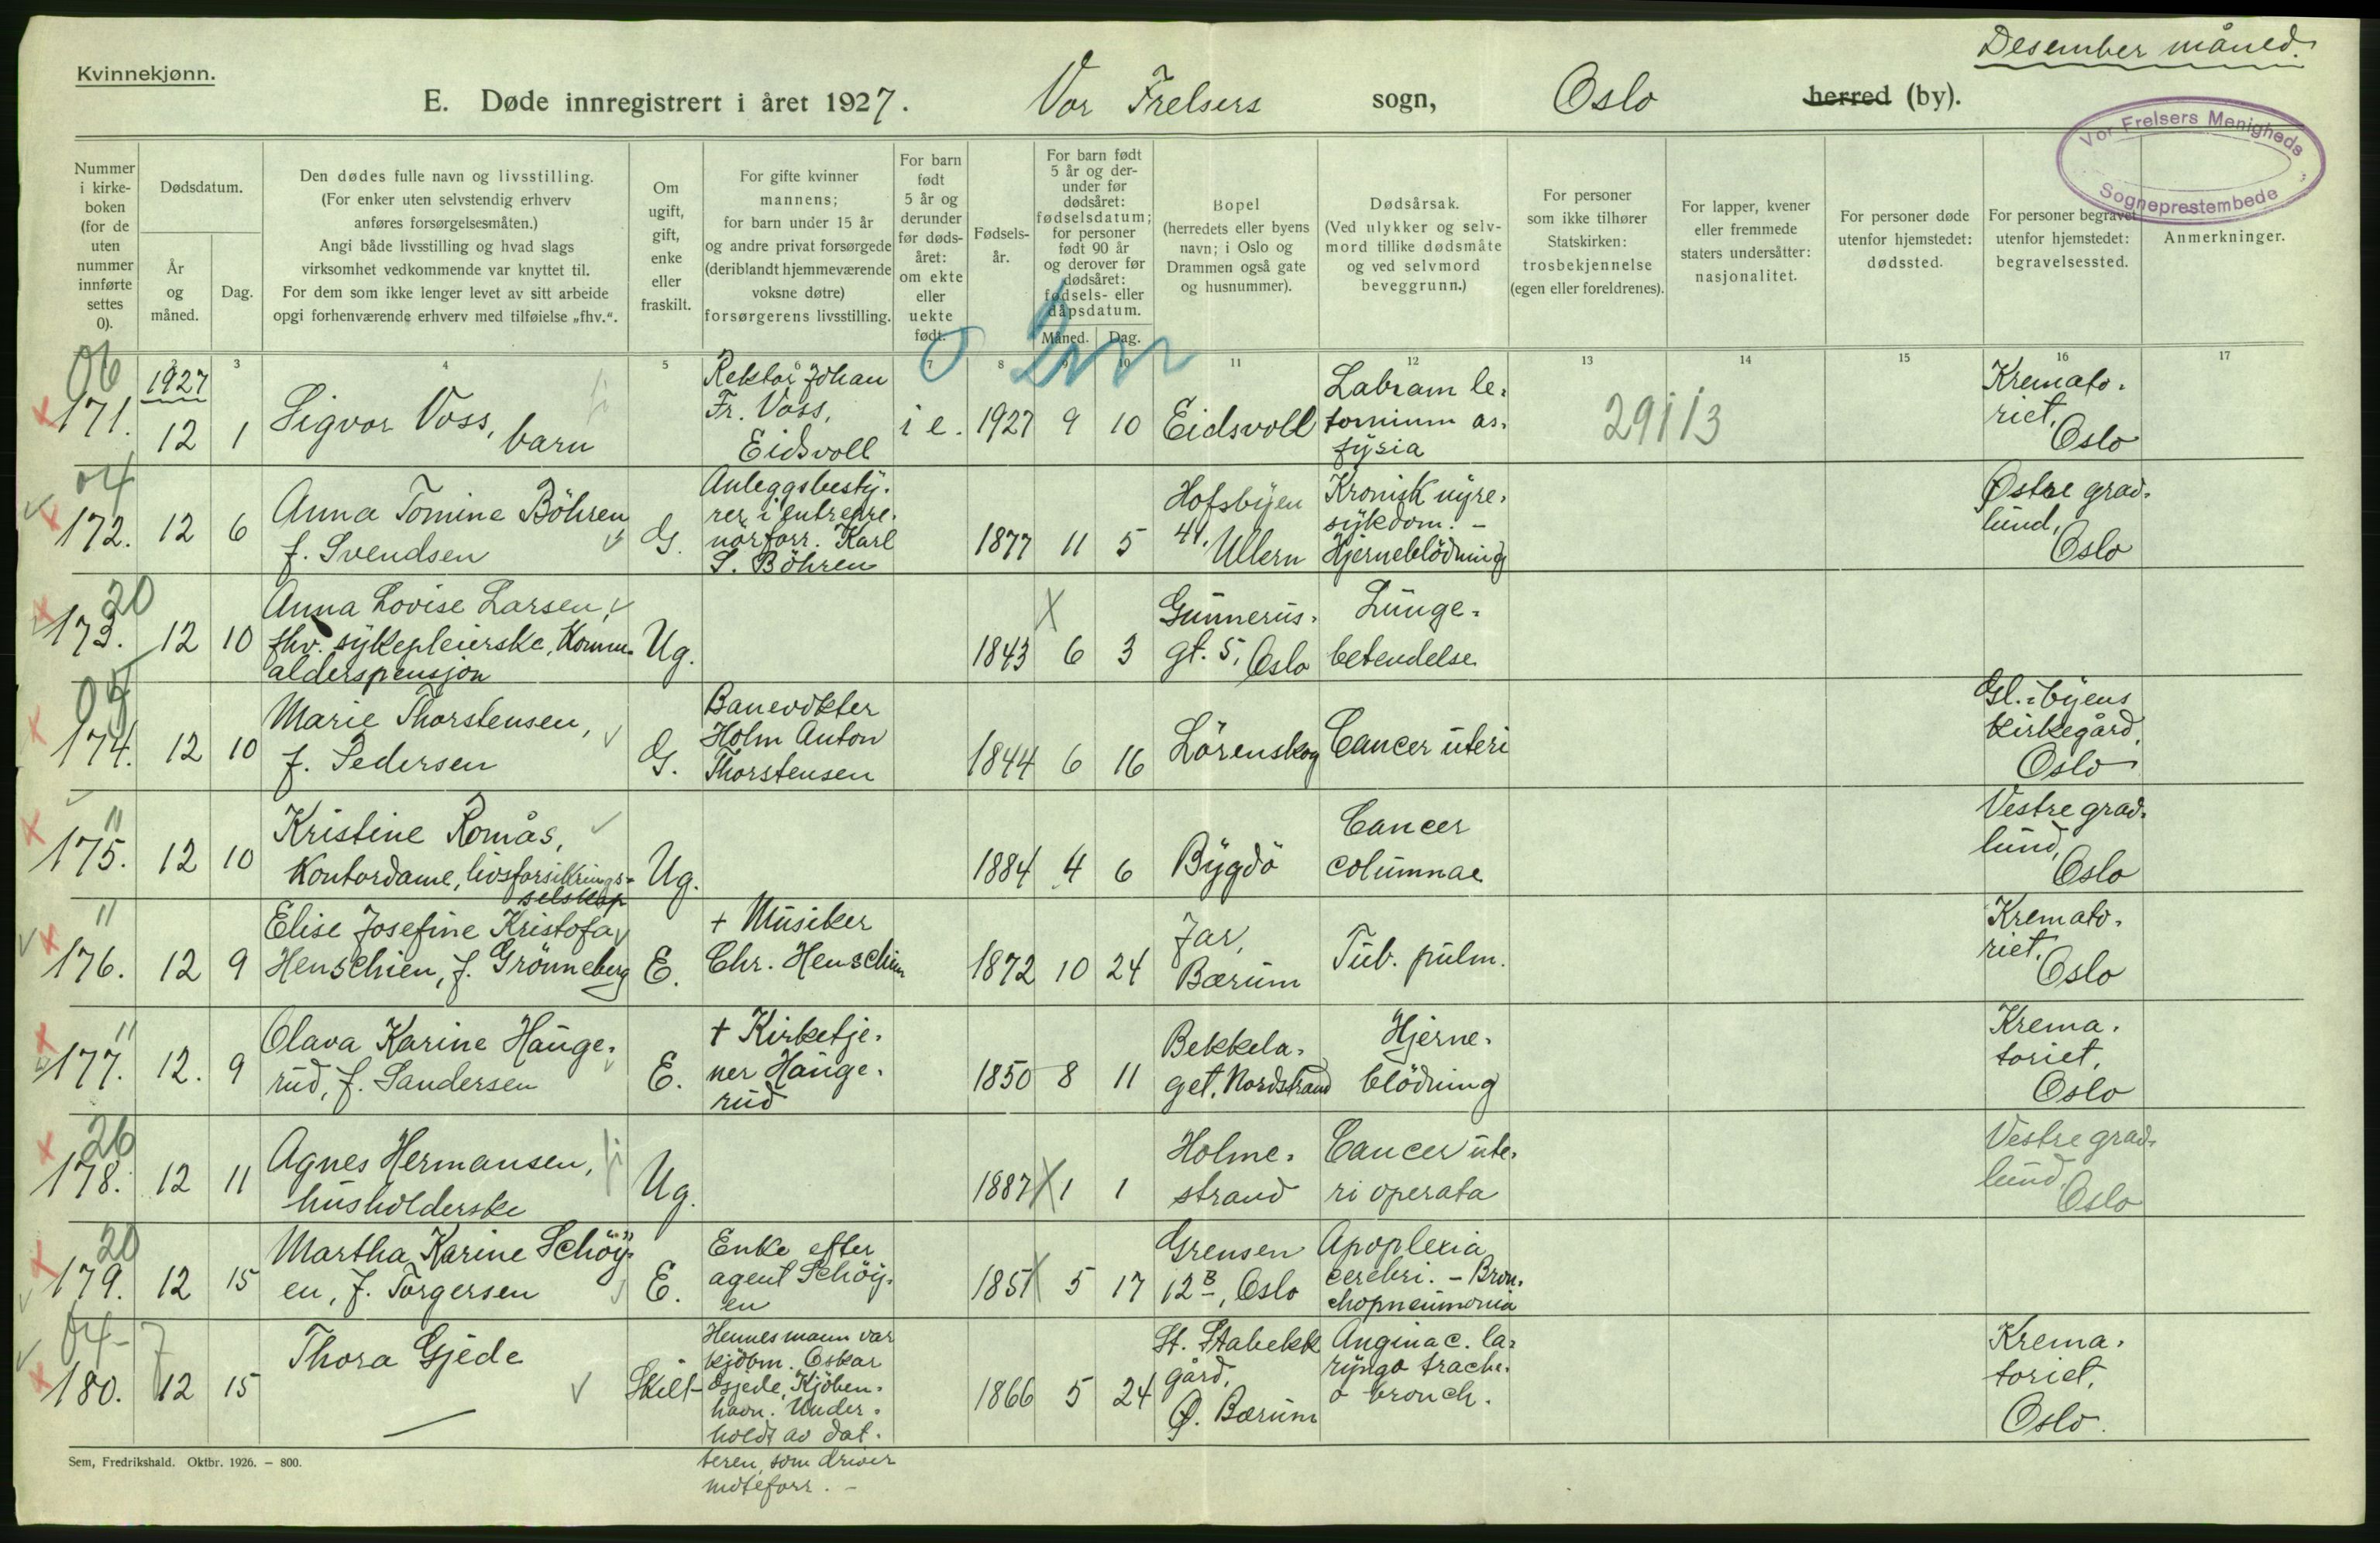 Desember måned.
Kvinnekjønn.
E. Døde innregistrert i året 1927. Vor Frelsers sogn, Oslo herred (by).
Vor Frelsers Menigheds
Sogneprestembede
Nummer
i kirke-
boken
(for de
uten
nummer
innførte
settes
0).
Dødsdatum.
År
og
måned.
Dag.
Den dødes fulle navn og livsstilling.
(For enker uten selvstendig erhverv
anføres forsørgelsesmåten.)
Angi både livsstilling og hvad slags
virksomhet vedkommende var knyttet til.
For dem som ikke lenger levet av sitt arbeide
opgi forhenværende erhverv med tilføielse „fhv.“.
Om
ugift,
gift,
enke
eller
fraskilt.
For gifte kvinner
mannens;
for barn under 15 år
og andre privat forsørgede
(deriblandt hjemmeværende
voksne døtre)
forsørgerens livsstilling.
For barn
født
5 år og
derunder
før døds-
året:
om ekte
eller
uekte
født.
Fødsels-
år.
For barn født
5 år og der-
under før
dødsåret:
fødselsdatum;
for personer
født 90 år
og derover før
dødsåret:
fødsels- eller
dåpsdatum.
Måned. Dag.
Bopel
(herredets eller byens
navn; i Oslo og
Drammen også gate
og husnummer).
Dødsårsak.
(Ved ulykker og selv-
mord tillike dødsmåte
og ved selvmord
beveggrunn.)
For personer
som ikke tilhører
Statskirken:
trosbekjennelse
(egen eller foreldrenes).
For lapper, kvener
eller fremmede
staters undersåtter:
nasjonalitet.
For personer døde
utenfor hjemstedet:
dødssted.
For personer begravet
utenfor hjemstedet:
begravelsessted.
Anmerkninger.
3 4 5 7 8 10 11 12 13 14 15 16 17
06
1927
171. 12 1
Sigvor Voss,
barn
Rektor Johan
Fr. Voss,
Eidsvoll
i e. 1927 9 10
Eidsvoll
Labram le-
tomium as-
fysia
29113
Kremato-
riet,
Oslo
04
172. 12 6
Anna Tomine Böhren
f. Svendsen
G.
Anleggsbesty-
rer i entrepre-
nørforr. Karl
S. Böhren
1877 11 5
Hofsbyen
41, Ullern
Kronisk nyre-
sykdom. -
Hjerneblödning
Østre grav-
lund,
Oslo
20
173. 12 10
Anna Lovise Larsen,
fhv. sykepleierske, Komm.
alderspensjon
Ug.
1843 6 3
Gunnerus-
gt. 5, Oslo
Lunge-
betendelse
04
174. 12 10
Marie Thorstensen,
f. Pedersen
G.
Banevokter
Holm Anton
Thorstensen
1844 6 16
Lörenskog
Cancer uteri
Gl. byens
kirkegård,
Oslo
11
175. 12 10
Kristine Romås,
Kontordame, livsforsikrings-
selskap
Ug.
1884 4 6
Bygdö
Cancer
columnae
Vestre grav-
lund,
Oslo
11
176. 12 9
Elise Josefine Kristofa
Henschien, f. Grönneberg
E.
+ Musiker
Chr. Henschien
1872 10 24
Jar,
Bærum
Tub. pulm.
Kremato-
riet,
Oslo
11
177. 12. 9
Olava Karine Hauge-
rud, f. Sandersen
E.
+ Kirketje-
ner Hauge-
rud
1850 8 11
Bekkela-
get, Nordstrand
Hjerne-
blödning
Krema-
toriet,
Oslo
26
178. 12 11
Agnes Hermansen,
husholderske
Ug.
1887 1 1
Holme-
strand
Cancer ute-
ri operata
Vestre grav-
lund,
Oslo
20
179. 12 15
Martha Karine Schöy-
en, f. Torgersen
E.
Enke efter
agent Schöy-
en
1851 5 17
Grensen
12 B, Oslo
Apoplexia
cerebri. - Bron-
chopneumonia
04-7
180. 12 15
Thora Gjede
Skilt
Hennes mann var
kjöbm. Oskar
Gjede, Kjöben-
havn. Under-
holdt av dat-
teren, som driver
moteforr. -
1866 5 24
St. Stabekk
gård,
Ø. Bærum
Angina c. la-
ryngo trache-
o bronch.
Krema-
toriet,
Oslo.
Sem, Fredrikshald. Oktbr. 1926. - 800.